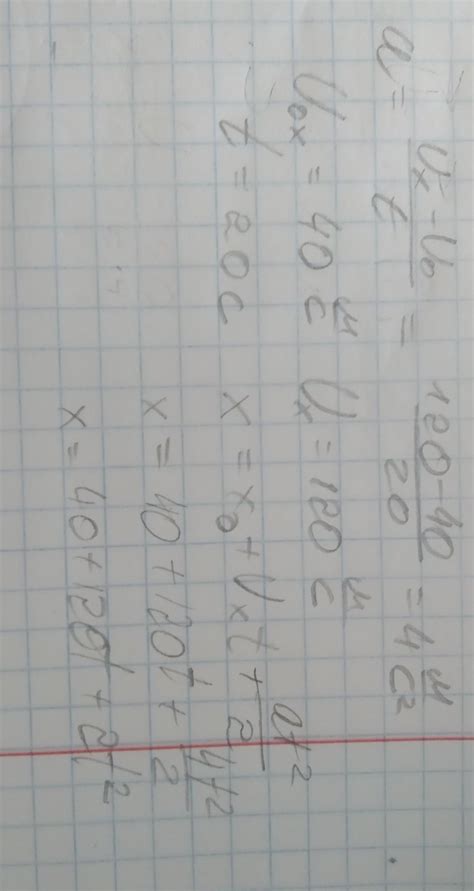 a = (Vx - V0)/t = (120 - 40)/20 = 4 м/с²
V0x = 40 м/с Vx = 120 м/с
t = 20 с x = x0 + Vxt + at²/2
x = 40 + 120t + 4t²/2
x = 40 + 120t + 2t²